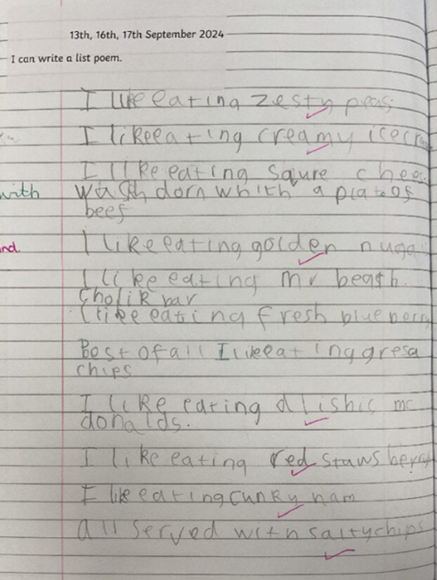 13th, 16th, 17th September 2024
I can write a list poem.
I like eating zesty peas
I likeeating creamy icecr
I like eating squre chees
with
wash dorn which a plate of
beef
nd.
I like eating golden nugg
I like eating mr beasth.
Cholik bar
I like eating fresh blueberry
Best of all I likeeating gresa
chips
I like eating dlishis mc
donalds.
I like eating red staws berry
I like eating cunky ham
all served with saltychips